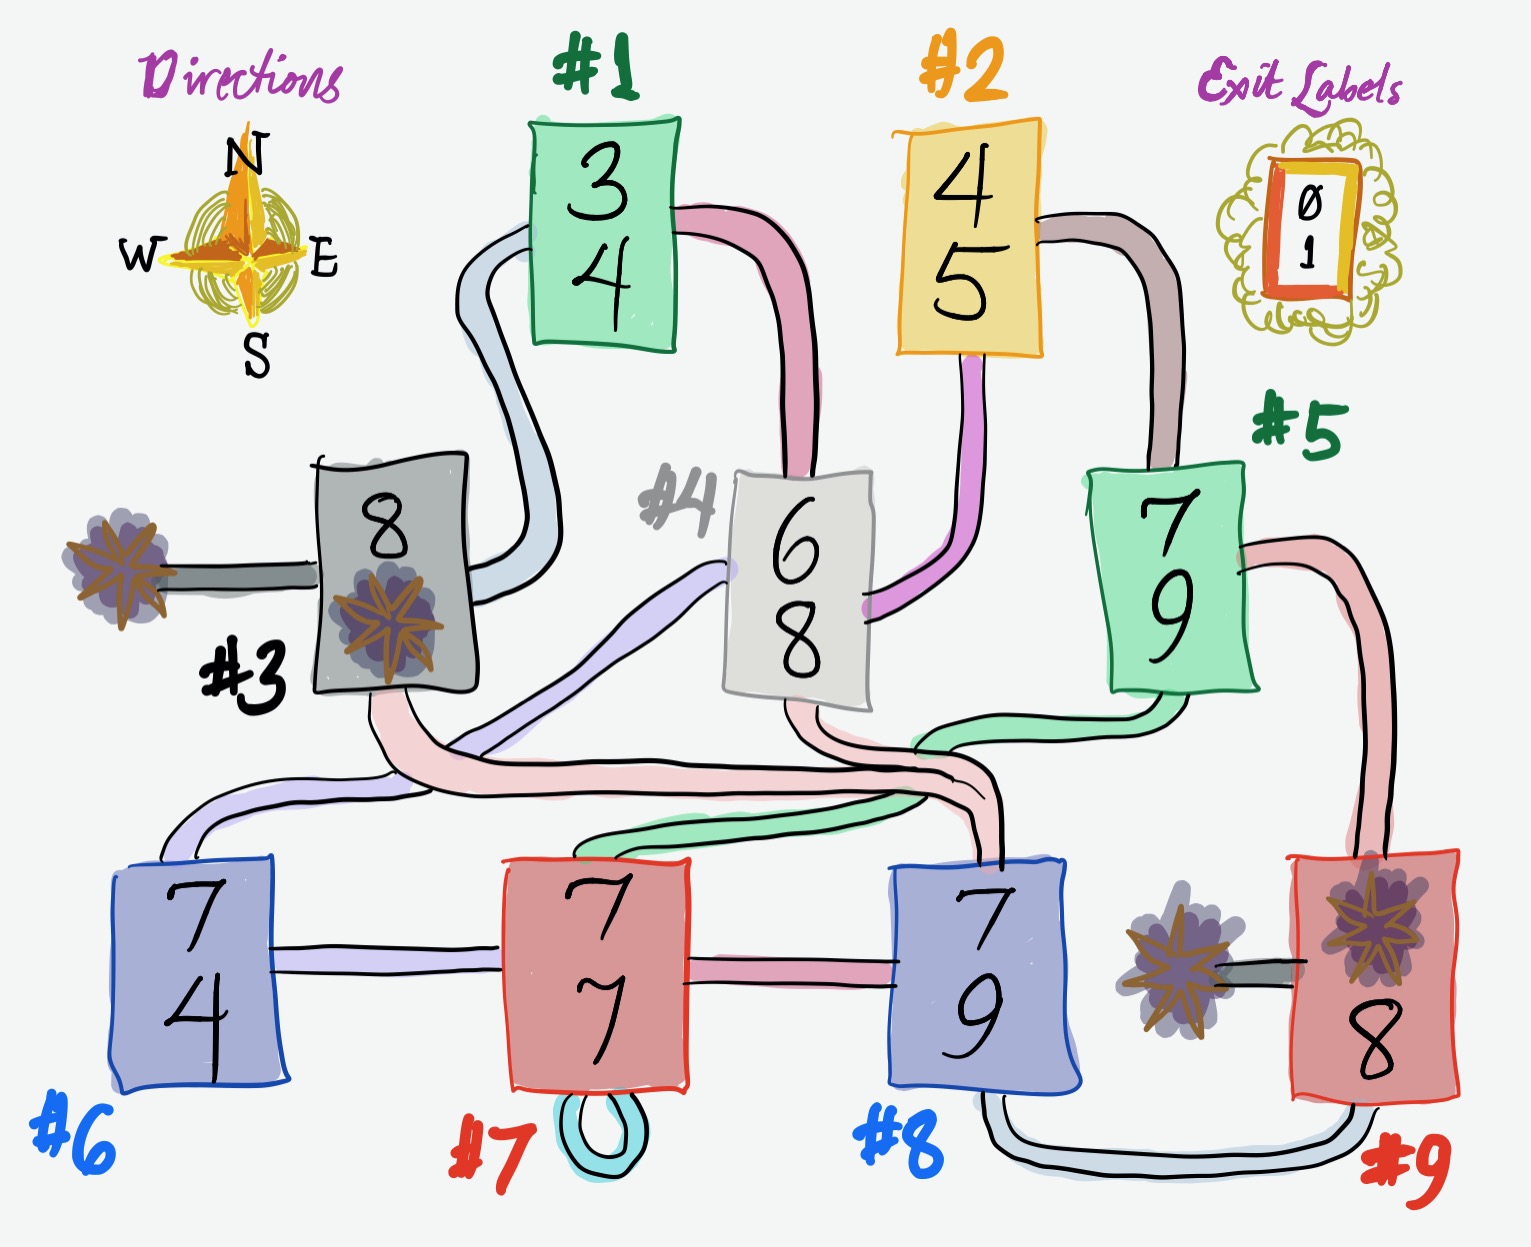 Directions
N
W E
S
#1
3
4
#2
4
5
Exit Labels
0
1
#3
8
#4
6
8
#5
7
9
#6
7
4
#7
7
7
#8
7
9
#9
8